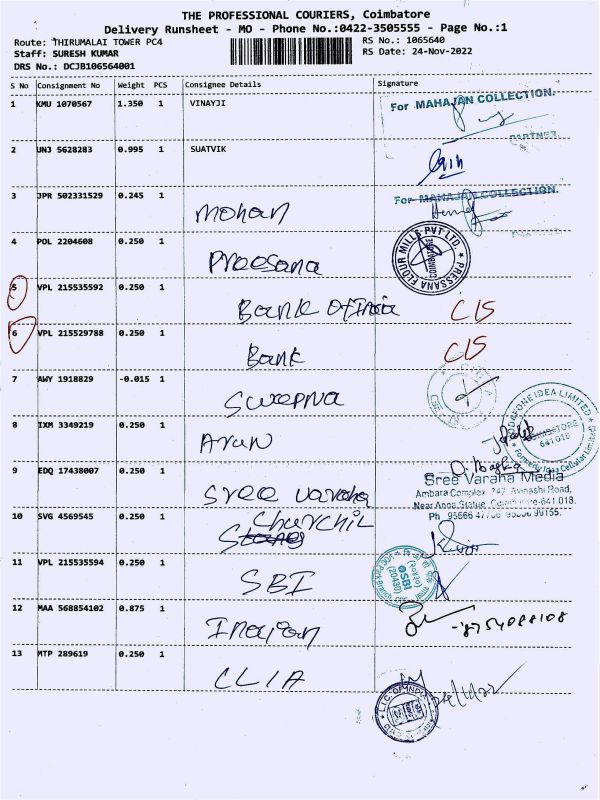 THE PROFESSIONAL COURIERS, Coimbatore
Delivery Runsheet - MO - Phone No.:0422-3505555 - Page No.:1
Route: THIRUMALAI TOWER PC4 RS No.: 1065640
Staff: SURESH KUMAR RS Date: 24-Nov-2022
DRS No.: DCJB106564001
S No Consignment No Weight PCS Consignee Details Signature
1 KMU 1070567 1.350 1 VINAYJI
For MAHAJAN COLLECTION.
PARTNER
2 UNJ 5628283 0.995 1 SUATVIK
3 JPR 502331529 0.245 1 Mohan
For MAHAJAN COLLECTION.
4 POL 2204608 0.250 1 Preesana
PRESSANA FLOUR MILLS PVT LTD.
COIMBATORE
5 VPL 215535592 0.250 1 Bank of India CIS
6 VPL 215529788 0.250 1 Bank CIS
7 AWY 1918829 -0.015 1 Swapna
8 IXM 3349219 0.250 1 Arun
VODAFONE IDEA LIMITED
COIMBATORE
641 018
Formerly Idea Cellular Limited
9 EDQ 17438007 0.250 1 Sree varaha
Sree Varaha Media
Ambara Complex, 742, Avinashi Road,
Near Anna Statue, Coimbatore-641 018.
10 SVG 4569545 0.250 1 Churchil
11 VPL 215535594 0.250 1 SBI
SBI
12 MAA 568854102 0.875 1 Indian
-8754088108
13 MTP 289619 0.250 1 CLIA
L.I.C. OF INDIA